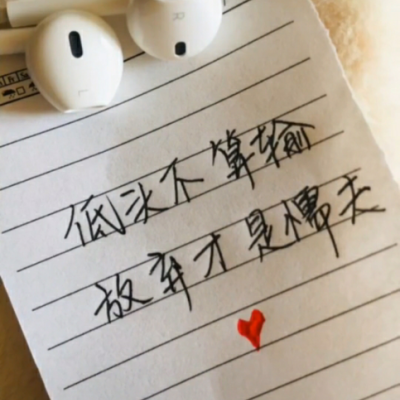 低头不算输
放弃才是懦夫